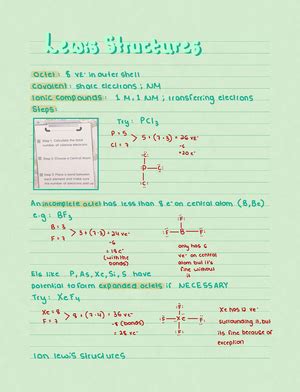 Lewis Structures
Octet: 8 ve⁻ in outer shell
Covalent: share electrons; NM
Ionic Compounds: 1 M, 1 NM; transferring electrons
Steps:
Step 1: Calculate the total number of valence electrons
Step 2: Choose a Central Atom
Step 3: Place a bond between each element and make sure the number of electrons add up
Try: PCl₃
P = 5
Cl = 7
> 5 + (7·3) = 26 ve⁻
-6
=20 e⁻
:Cl:
P — Cl:
:Cl:
An incomplete octet has less than 8 e⁻ on central atom (B, Be)
e.g: BF₃
B = 3
F = 7
> 3 + (7·3) = 24 ve⁻
-6
= 18 e⁻
(with the bonds)
:F:
:F — B — F:
only has 6 ve⁻ on central atom but it's fine without it
Els like P, As, Xe, Si, S have
potential to form expanded octets if NECESSARY
Try: XeF₄
Xe = 8
F = 7
> 8 + (7·4) = 36 ve⁻
-8 (bonds)
= 28 ve⁻
:F:
:F — Xe — F:
:F:
Xe has 12 ve⁻ surrounding it, but its fine because of exception
Ion lewis structures